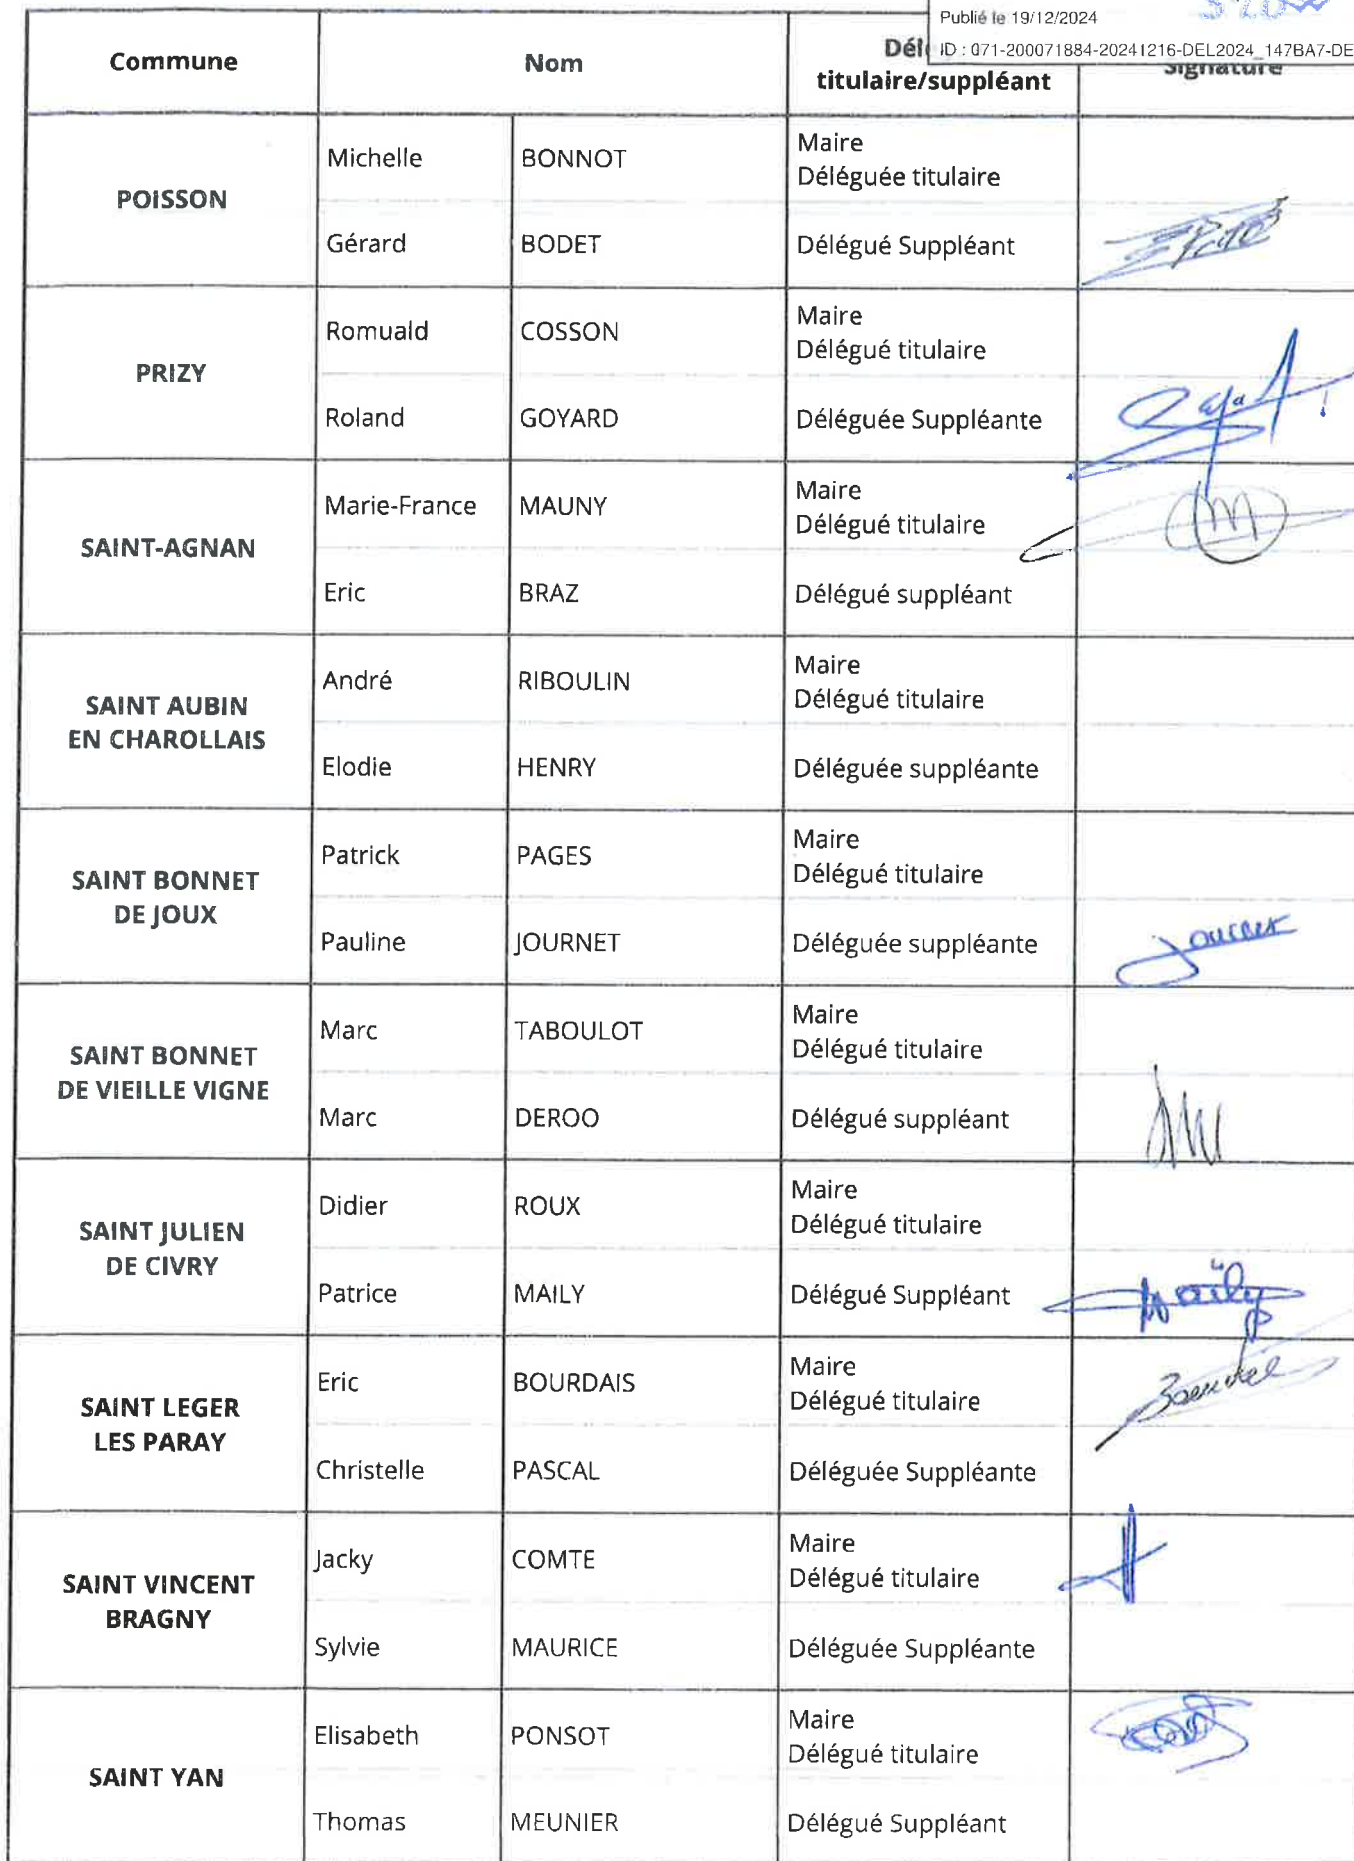 Publié le 19/12/2024
ID : 071-200071884-20241216-DEL2024_147BA7-DE
Commune Nom titulaire/suppléant Signature
POISSON
Michelle BONNOT Maire
Déléguée titulaire
Gérard BODET Délégué Suppléant
PRIZY
Romuald COSSON Maire
Délégué titulaire
Roland GOYARD Déléguée Suppléante
SAINT-AGNAN
Marie-France MAUNY Maire
Délégué titulaire
Eric BRAZ Délégué suppléant
SAINT AUBIN
EN CHAROLLAIS
André RIBOULIN Maire
Délégué titulaire
Elodie HENRY Déléguée suppléante
SAINT BONNET
DE JOUX
Patrick PAGES Maire
Délégué titulaire
Pauline JOURNET Déléguée suppléante
SAINT BONNET
DE VIEILLE VIGNE
Marc TABOULOT Maire
Délégué titulaire
Marc DEROO Délégué suppléant
SAINT JULIEN
DE CIVRY
Didier ROUX Maire
Délégué titulaire
Patrice MAILY Délégué Suppléant
SAINT LEGER
LES PARAY
Eric BOURDAIS Maire
Délégué titulaire
Christelle PASCAL Déléguée Suppléante
SAINT VINCENT
BRAGNY
Jacky COMTE Maire
Délégué titulaire
Sylvie MAURICE Déléguée Suppléante
SAINT YAN
Elisabeth PONSOT Maire
Délégué titulaire
Thomas MEUNIER Délégué Suppléant